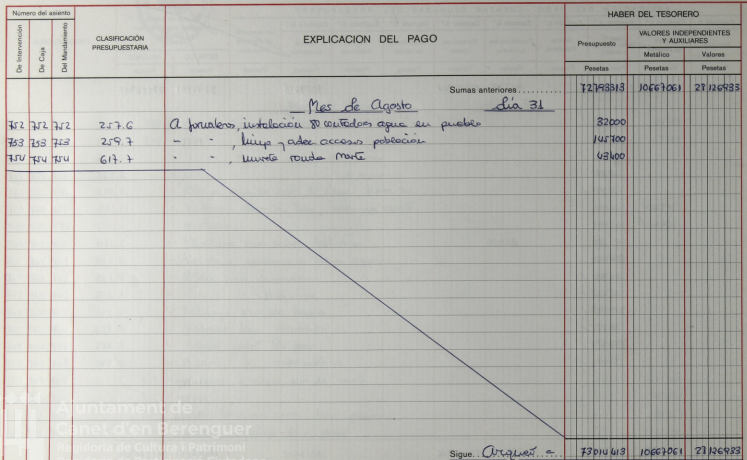 Número del asiento
De Intervención
De Caja
Del Mandamiento
CLASIFICACIÓN PRESUPUESTARIA
EXPLICACION DEL PAGO
HABER DEL TESORERO
Presupuesto
VALORES INDEPENDIENTES Y AUXILIARES
Metálico
Valores
Pesetas Pesetas Pesetas
Sumas anteriores.......... 72793313 10667061 27126933
Mes de Agosto día 31
752 752 752 257.6 A jornaleros, instalación 80 contadores agua en pueblo 32000
753 753 753 259.7 - - , limp y adec accesos población 145700
754 754 754 617.7 - - , murete ronda Norte 43400
Sigue.. Arqueo = 73014413 10667061 27126933
Ajuntament de
Canet d'en Berenguer
Regidoria de Cultura i Patrimoni